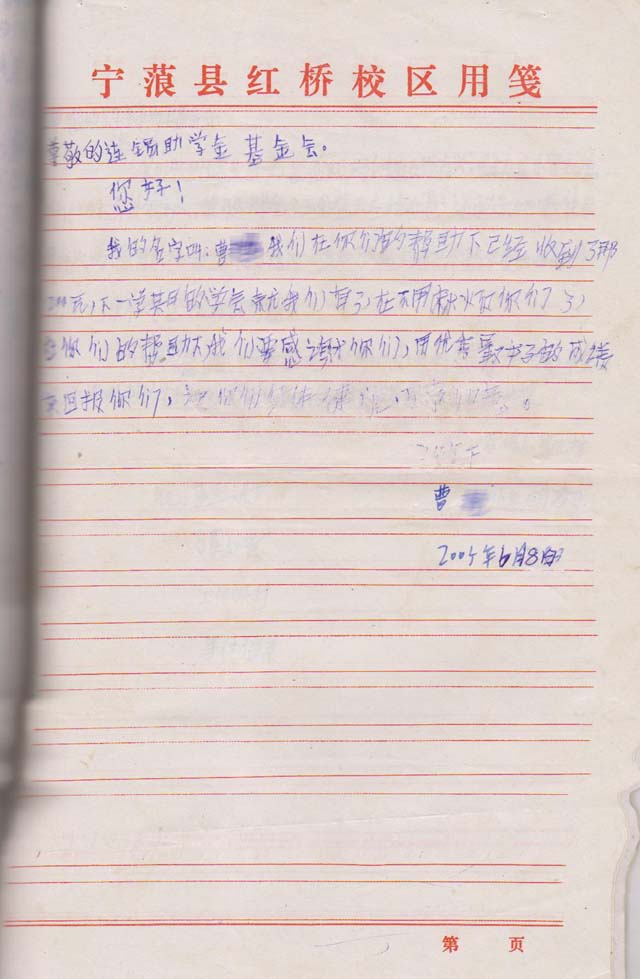 宁蒗县红桥校区用笺
尊敬的连锡助学金基金会。
您好！
我的名字叫：曹 我们在你们的帮助下已经收到了那
元，下一学其目的学会就我们有了，在不用 你们了，
你们的帮助大，我们要感谢你们，用优秀 的成绩
来回报你们，祝你们身体健康，万事如意。
曹
2005年6月8日
第 页